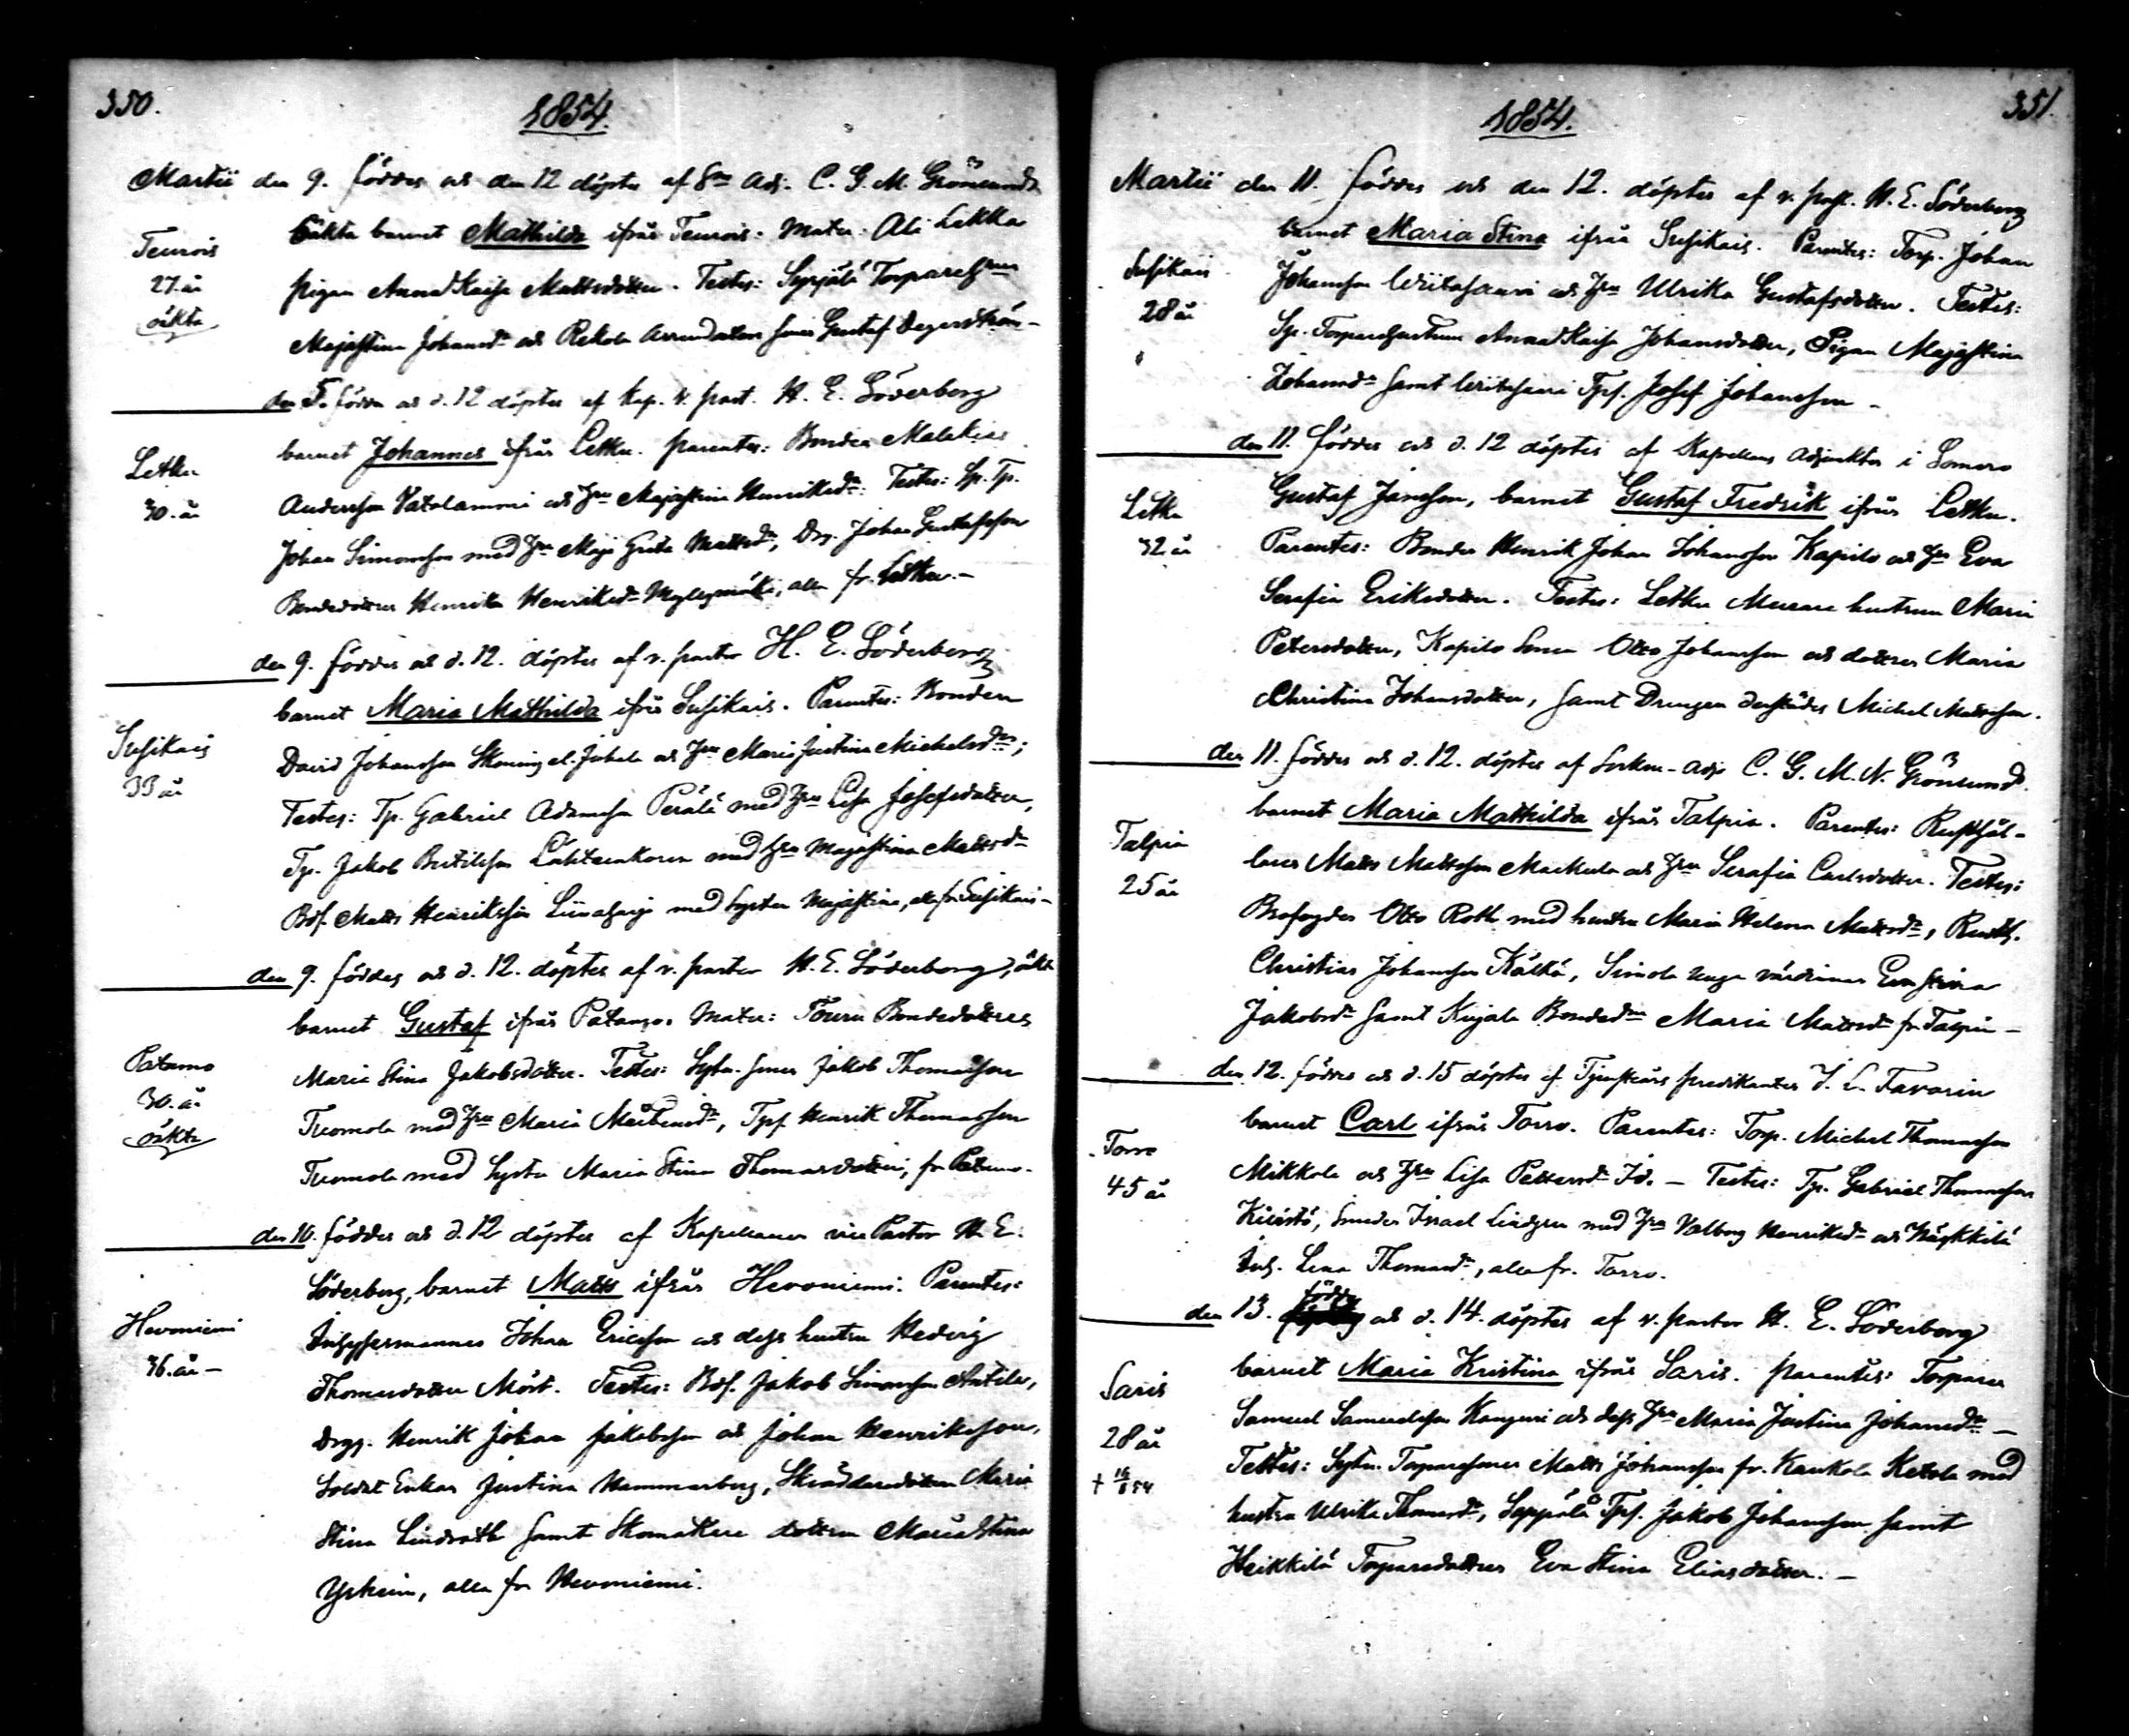 350.
1854.
Martii den 9. föddes och den 12 döptes af Adj. C. G. M. Grönlund
oäkta barnet Mathilda ifrån Teurois: Mater: Ali Lekka
Teurois
pigan Anna Kaisa Mattsdotter. Testes: Syrjälä
27. år
oäkta
Majastina Johansdr och Rekola Arrendators sonen Gustaf Degerström –
den 5. födde och d. 12 döptes af Kap. v. past. H. E. Söderborg
barnet Johannes ifrån Letku. parentes: Bonden Malakias
Letku
30. år
Andersson Vatolammi och Hru Majastina Henriksdr. Testes: Tp.
Johan Simonsson med Hru Maja Greta Mattsdr, Drg. Johan Gustafsson
Bondedottren Henrika Henriksdr Myllymäki, alla fr. Letku. –
den 9. föddes och d. 12. döptes af v. pastor H. E. Söderborg
barnet Maria Mathilda ifrån Susikais. Parentes: Bonden
Susikais
33 år
David Johansson Skoning el. Jakola och Hru Maria Justina Michelsdr;
Testes: Tp. Gabriel Adamsson Perälä med Hru Lisa Josefsdotter,
Tp. Jakob Bertilsson Lähteenkorva med Hru Majastina Mattsdr
Bdf. Matts Henriksson Liinaharja med syster Majastina, alla fr. Susikais –
den 9. föddes och d. 12. döptes af v. pastor H. E. Söderborg, oäkta
barnet Gustaf ifrån Patamo. Mater: Touru Bondedottren
Patamo
30. år
oäkta
Maria Stina Jakobsdotter. Testes: Sytn. sonen Jakob Thomasson
Tuomola med Hru Maria Mårtensdr, Tpf Henrik Thomasson
Tuomola med Syster Maria Stina Thomasdotter, fr Patamo.
den 10. föddes och d. 12 döptes af Kapellanen vice Pastor H. E.
Söderborg, barnet Matts ifrån Hevoniemi. Parentes:
Hevoniemi
36. år –
Inhysesmannen Johan Ericsson och dess hustru Hedvig
Thomasdotter Mört. Testes: Bdf. Jakob Simonsson Antila,
drgg. Henrik Johan Jakobsson och Johan Henriksson,
Soldat Enkan Justina Hammarberg, Skräddaredottren Maria
Stina Lindroth samt Skomakare dottren Maria Stina
alla fr Hevoniemi.
351.
1854.
Martii den 11. föddes och den 12. döptes af v. past. H. E. Söderborg
barnet Maria Stina ifrån Susikais. Parentes: Torp. Johan
Susikais
28 år
Johansson Wiitasaari och Hru Ulrika Gustafsdotter. Testes:
Sp. Torparehustrun Anna Kaisa Johansdotter, Pigan Majastina
Johansdr samt Wiitasaari Tpf. Josef Johansson –
den 11. föddes och d. 12 döptes af Kapellans Adjunkten i Somero
Gustaf Jansson, barnet Gustaf Fredrik ifrån Letku.
Letku
32 år
Parentes: Bonden Henrik Johan Johansson Kapilo och Hru Eva
Serafia Eriksdotter. Testes: Letku Murare hustrun Maria
Petersdotter, Kapilo Sonen Otto Johansson och dottren Maria
Christina Johansdotter, samt Drengen derstädes Michel Mattsson.
den 11. föddes och d. 12. döptes af Sockn-adj C. G. M. N. Grönlund
barnet Maria Mathilda ifrån Talpia. Parentes: Rusthål-
Talpia
25 år
laren Matts Mattsson Markula och Hru Serafia Carlsdotter. Testes:
Brofogden Otto Roth med hustru Maria Helena Mattsdr, Rusth.
Christian Johansson Källkä, Simola unga värdinnan Eva Stina
Jakobsdr samt Kujala Bondedr Maria Mattsdr fr. Talpia –
den 12. föddes och d. 15 döptes af Tjenstårs predikanten J. L. Favorin
barnet Carl ifrån Torro. Parentes: Torp. Michel Thomasson
Torro
45 år
Mikkola och Hru Lisa Pettersdr Id. – Testes: Tp. Gabriel Thomasson
Kivistö, smeden Israel Lindgren med Hru Valborg Henriksdr och
Inh. Lena Thomasdr, alla fr. Torro.
den 13. föddes och d. 14. döptes af v. pastor H. E. Söderborg
barnet Maria Kristina ifrån Saris. parentes: Torparen
Saris
28 år
Samuel Samuelsson Kangvi och dess Hru Maria Justina Johansdr –
Testes: Sytn. Torparesonen Matts Johansson fr. Kaukola Ketola med
hustru Ulrika Thomasdr, Seppälä Tpf. Jakob Johansson samt
Heikkilä Torparedottren Eva Stina Eliasdotter. –